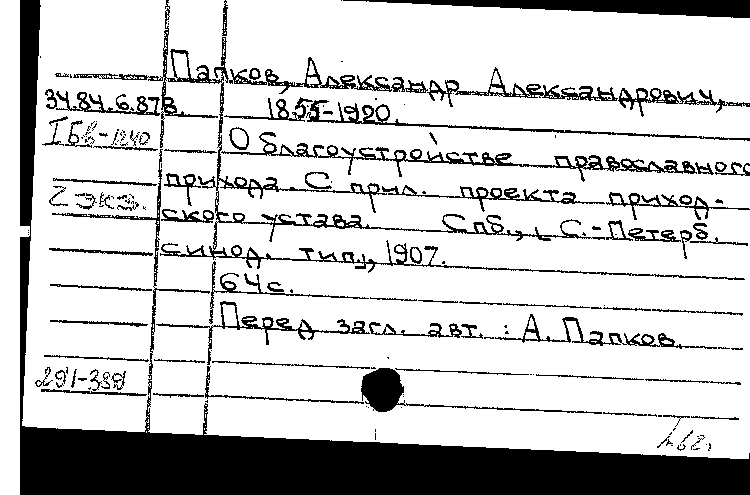 Папков, Александр Александрович,
34.84.6.87В. 1855-1920.
IБв-1240 О благоустройстве православного
прихода. С прил. проекта приход-
2 экз. ского устава. Спб., [С.-Петерб.
синод. тип.], 1907.
64 с.
Перед загл. авт.: А. Папков.
291-389